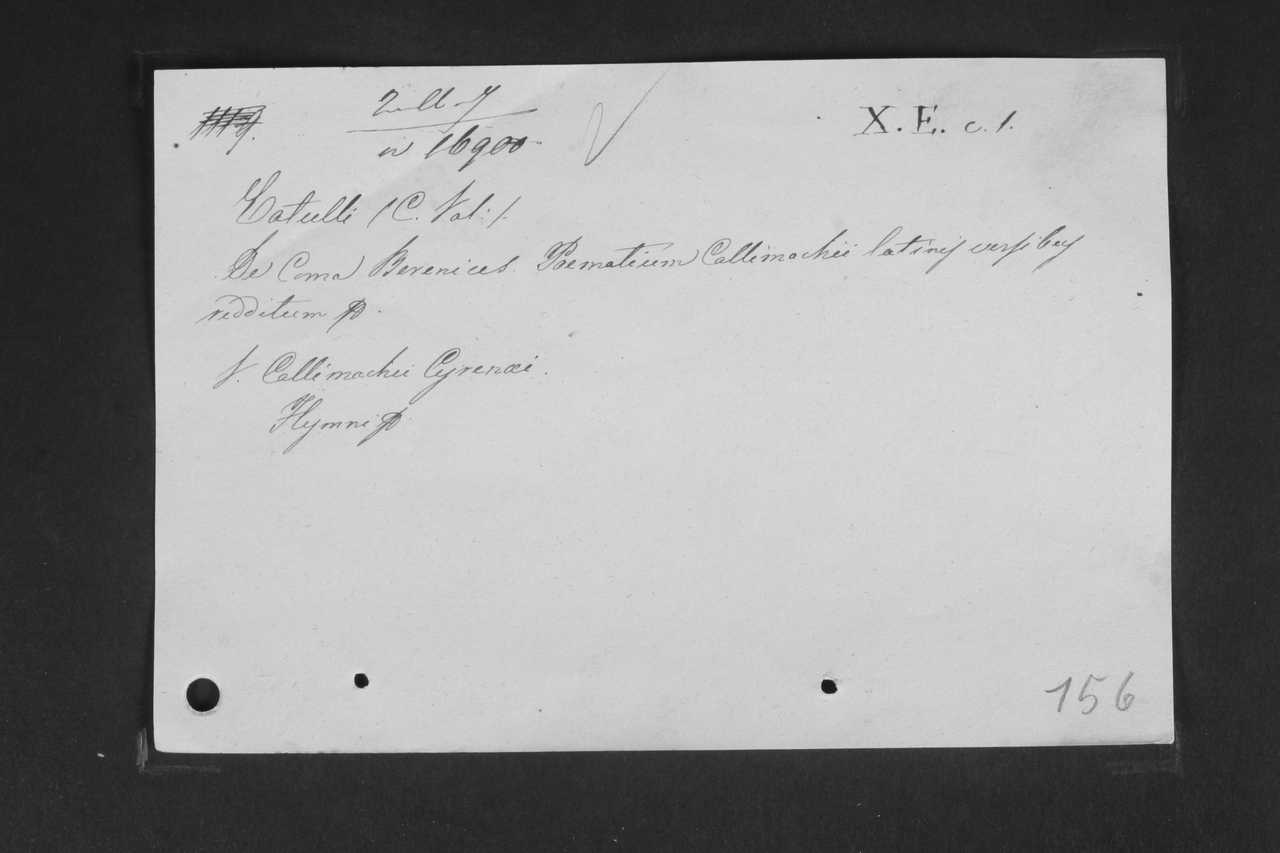 in 16900
X. E. c. 1.
Catulli (C. Val:).
De Coma Berenices. Poematium Callimachii latinis versibus
redditum
V. Callimachii Cyrenæi.
Hymni
156